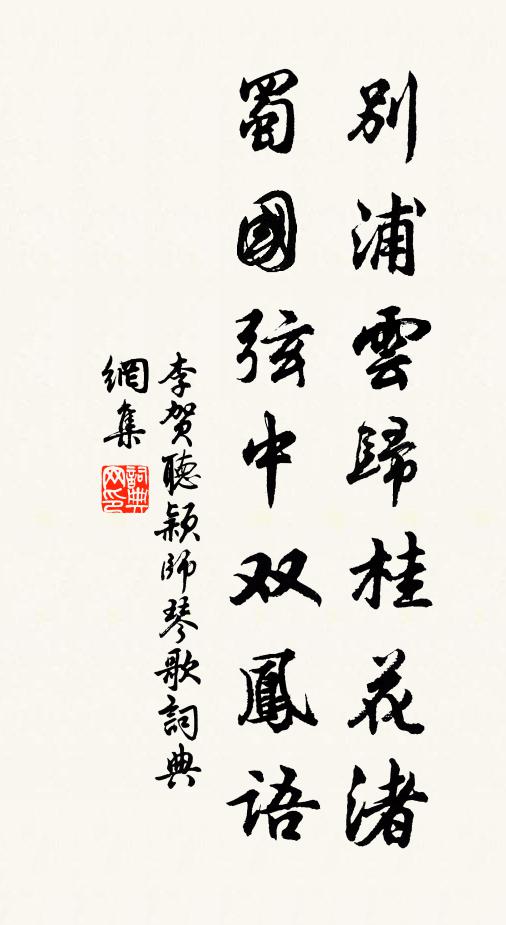 別浦雲歸桂花渚
蜀國弦中双鳳語
李贺聽颖師琴歌詞典
網集
詞典網印